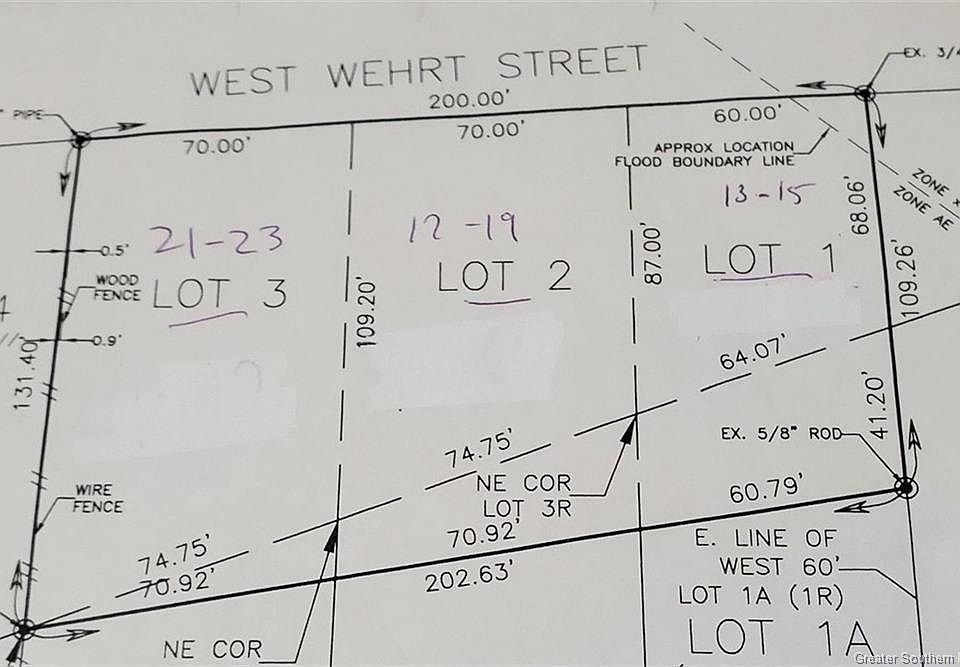 WEST WEHRT STREET
EX. 3/4
PIPE
200.00'
70.00'
70.00'
60.00'
APPROX LOCATION
FLOOD BOUNDARY LINE
ZONE X
ZONE AE
13-15
68.06'
21-23
12-19
0.5'
87.00'
LOT 1
WOOD
FENCE
LOT 3
LOT 2
109.20'
109.26'
0.9'
131.40'
64.07'
41.20'
EX. 5/8" ROD
74.75'
NE COR
LOT 3R
60.79'
WIRE
FENCE
70.92'
E. LINE OF
WEST 60'
LOT 1A (1R)
74.75'
70.92'
202.63'
NE COR
LOT 1A
Greater Southern